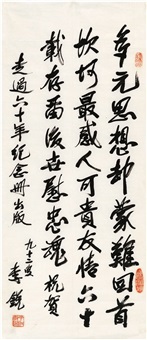 多元思想却蒙難回首
坎坷最感人可貴友情六十
載存留後世慰忠魂 祝賀
走過六十年紀念册出版
九十二叟 李銳